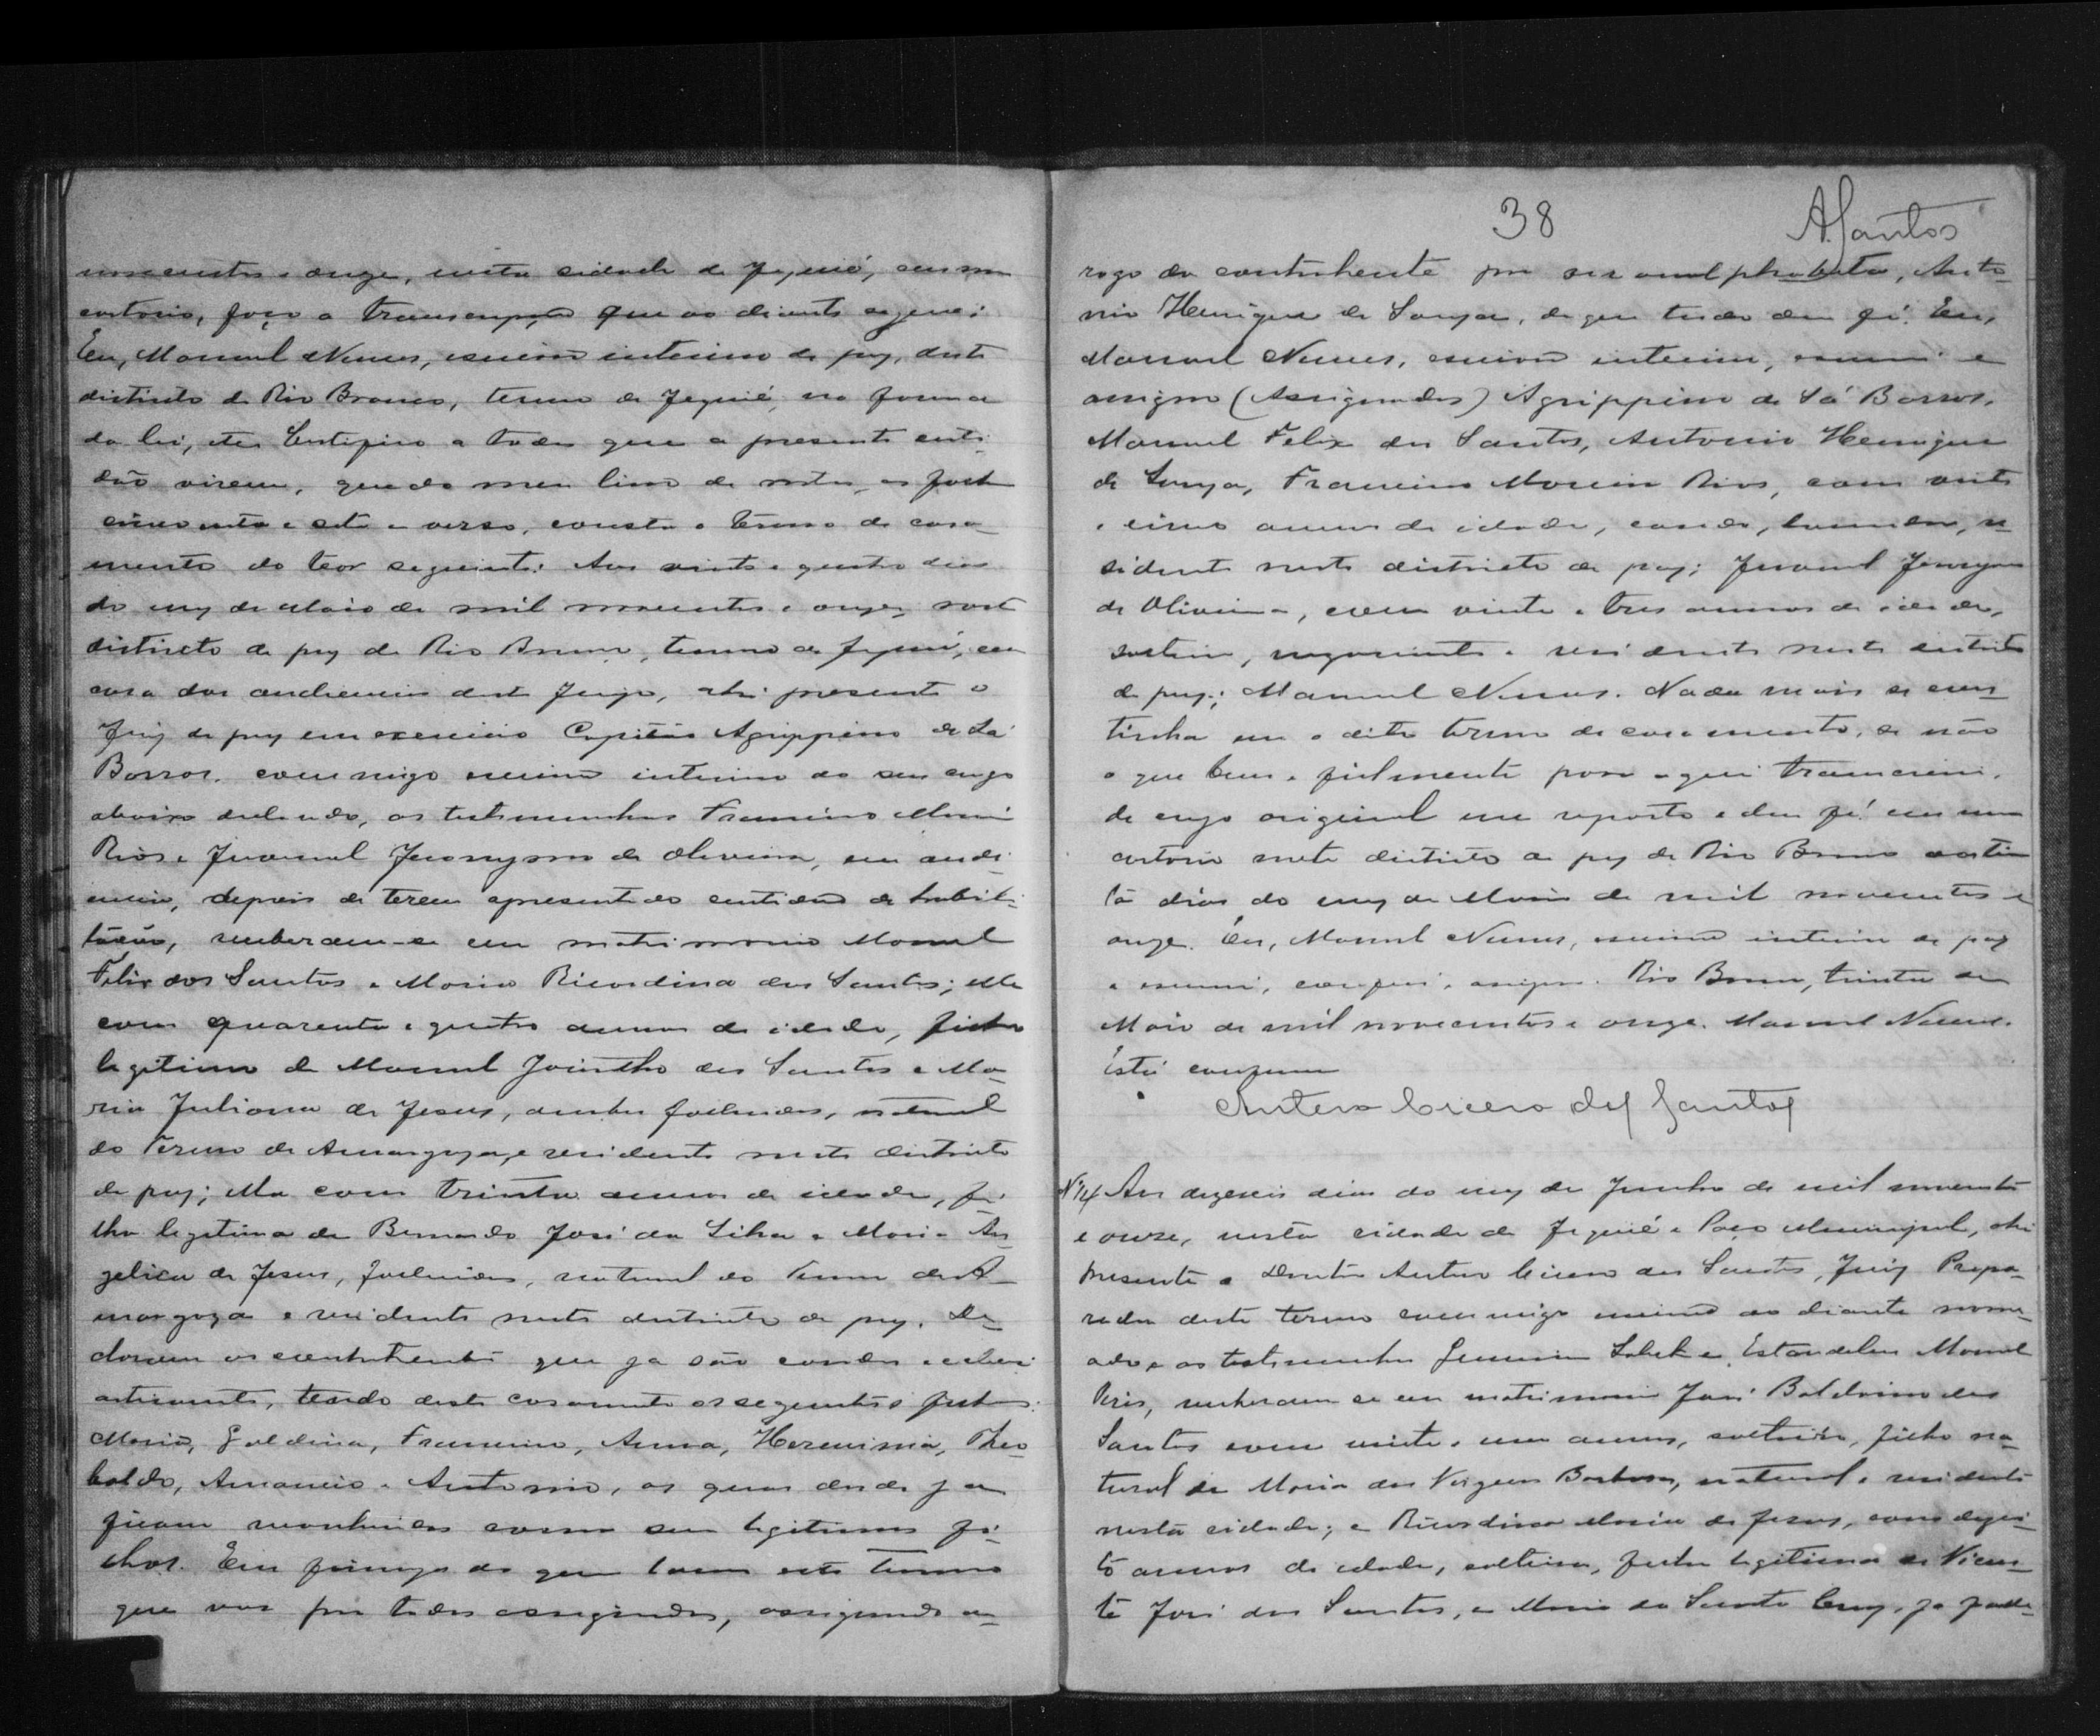 novecentos e onze, nesta cidade de Jequié, em meu
cartorio, faço a transcripção que ao diante segue:
Eu, Manuel Nunes, escrivão interino de paz, deste
districto de Rio Branco, termo de Jequié, na forma
da lei, etc. Certifico a todos que a presente certi-
dão virem, que do meu livro de notas, as folhas
cincoenta e sete e verso, consta o termo de casa-
mento do teor seguinte: Aos vinte e quatro dias
do mez de Maio de mil novecentos e onze, neste
districto de paz de Rio Branco, termo de Jequié, em
casa das audiencias deste Juizo, ahi presente o
Juiz de paz em exercicio Capitão Agrippino de Sá
Barros, commigo escrivão interino do seu cargo
abaixo declarado, as testemunhas Francisco Moreira
Rios e Juvenal Jeronymo de Oliveira, em audi-
encia, depois de terem apresentado certidão de habili-
tação, receberam-se em matrimonio Manuel
Felix dos Santos e Maria Ricardina dos Santos; elle
com quarenta e quatro annos de idade, filho
legitimo de Manuel Jacintho dos Santos e Ma-
ria Juliana de Jesus, ambos fallecidos, natural
do Termo de Amargoza, e residente neste districto
de paz; ella com trinta annos de idade, fi-
lha legitima de Bernardo José da Silva e Maria An-
gelica de Jesus, fallecidos, natural do Termo de A-
margoza e residente neste districto de paz. De-
claram os contrahentes que ja são casados ecclesi-
asticamente, tendo deste casamento os seguintes filhos:
Maria, Galdina, Francisco, Anna, Herminia, Theo-
baldo, Amancio e Antonio, os quaes desde ja
ficam reconhecidos como seus legitimos fi-
lhos. Em firmeza do que lavrei este termo
que vae por todos assignados, assignando a
38 A. Santos
rogo da contrahente por ser analphabeta, Anto-
nio Henrique de Souza, de que tudo dou fé. Eu,
Manuel Nunes, escrivão interino, escrevi e
assigno (Assignados) Agrippino de Sá Barros,
Manuel Felix dos Santos, Antonio Henrique
de Souza, Francisco Moreira Rios, com vinte
e cinco annos de idade, casado, re-
sidente neste districto de paz; Juvenal Jeronymo
de Oliveira, com vinte e tres annos de idade,
solteiro, negociante e residente neste districto
de paz; Manuel Nunes. Nada mais se con-
tinha em o dito termo de casamento, se não
o que bem e fielmente para aqui transcrevi,
de cujo original me reporto e dou fé em meu
cartorio neste districto de paz de Rio Branco aos trin-
ta dias do mez de Maio de mil novecentos e
onze. Eu, Manuel Nunes, escrivão interino de paz
o escrevi, conferi e assigno. Rio Branco, trinta de
Maio de mil novecentos e onze. Manuel Nunes.
Está conforme
Antero Cicero dos Santos
Nº 14 Aos dezeseis dias do mez de Junho de mil novecentos
e onze, nesta cidade de Jequié e Paço Municipal, ahi
presente o Doutor Antero Cicero dos Santos, Juiz Prepa-
rador deste termo commigo escrivão ao diante nome-
ado e as testemunhas Estandelau Manuel
Pires, receberam-se em matrimonio José Balduino dos
Santos com vinte e um annos, solteiro, filho na-
tural de Maria das Virgens Barbosa, natural e residente
nesta cidade; e Ricardina Maria de Jesus, com dezoi-
to annos de idade, solteira, filha legitima de Vicen-
te José dos Santos, e Maria da Santa Cruz, ja falle-